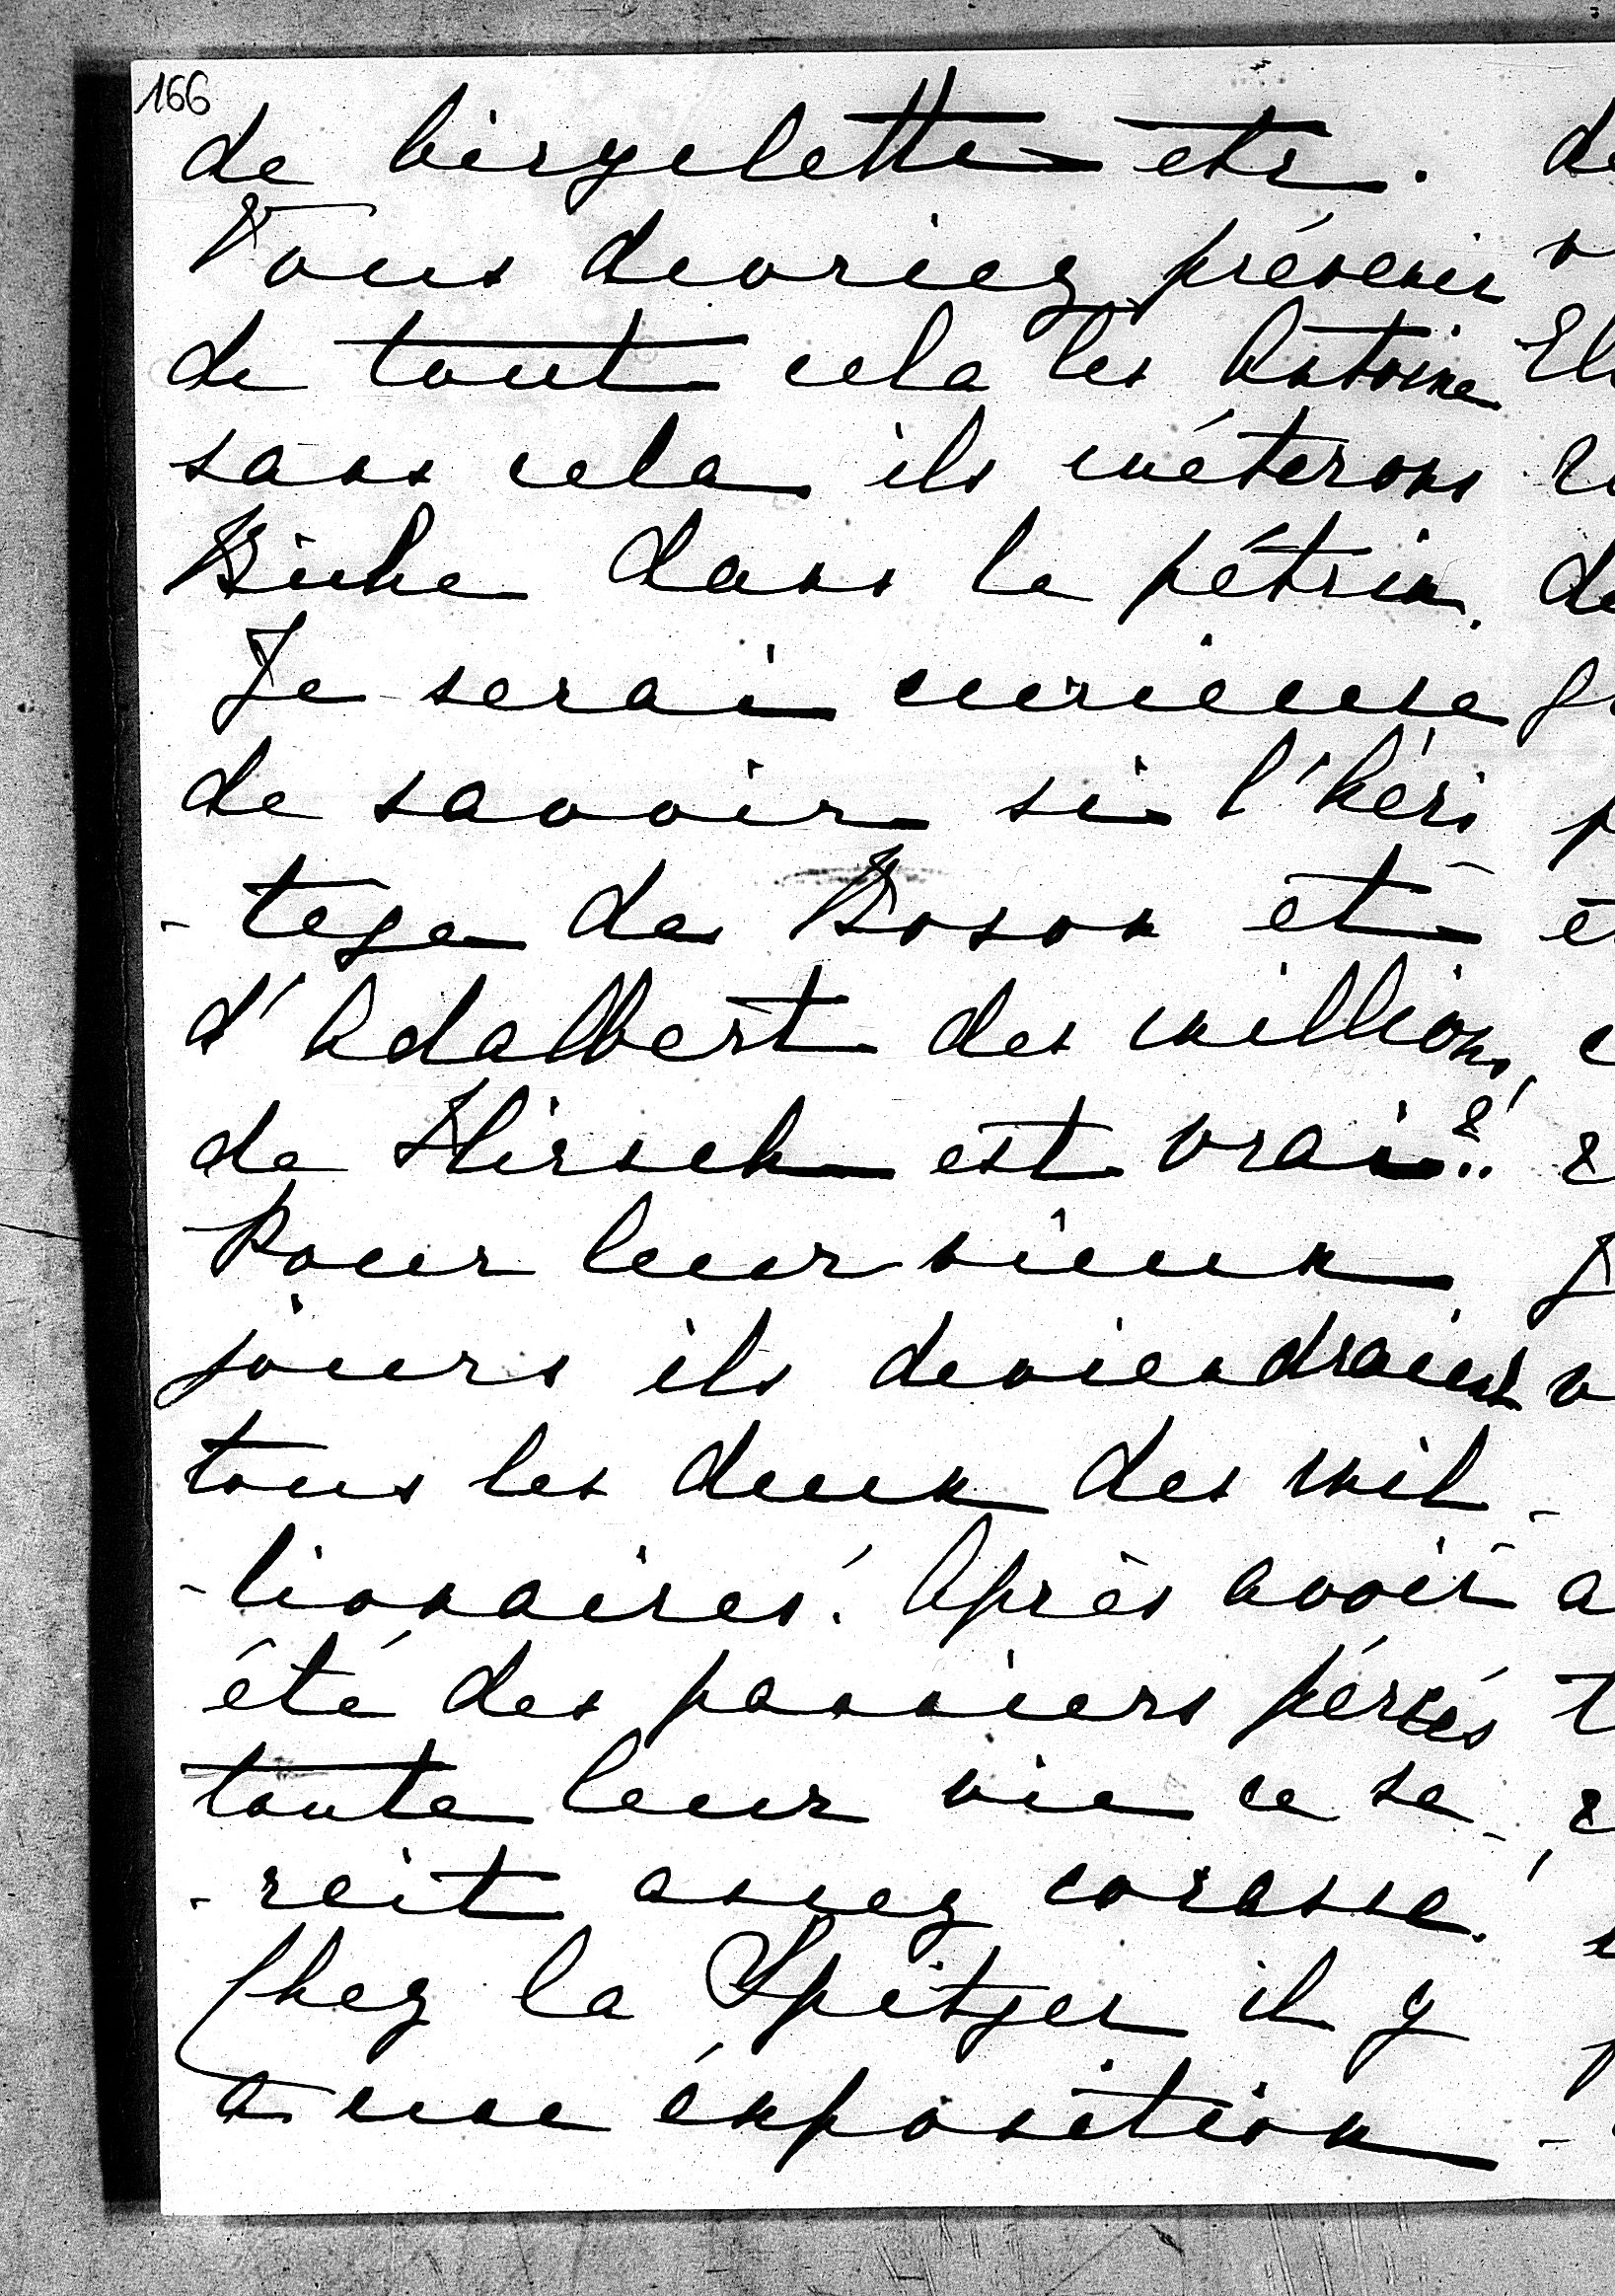 166
de bicyclette etc.
Vous devriez prévenir
de tout cela les Antoine
sans cela ils méterons
Biche dans le pétrin.
Je serai curieuse
de savoir si l'héri
-tege de Boson et
d'Adalbert des millions
de Hirsch est vrai?!
Pour leur vieux
jours ils deviendraient
tous les deux des mil-
-lionaires! Après avoir
été des panniers percés
toute leur vie ce se-
-rait assez cocasse!
Chez la Spitzer il y
a une éxposition